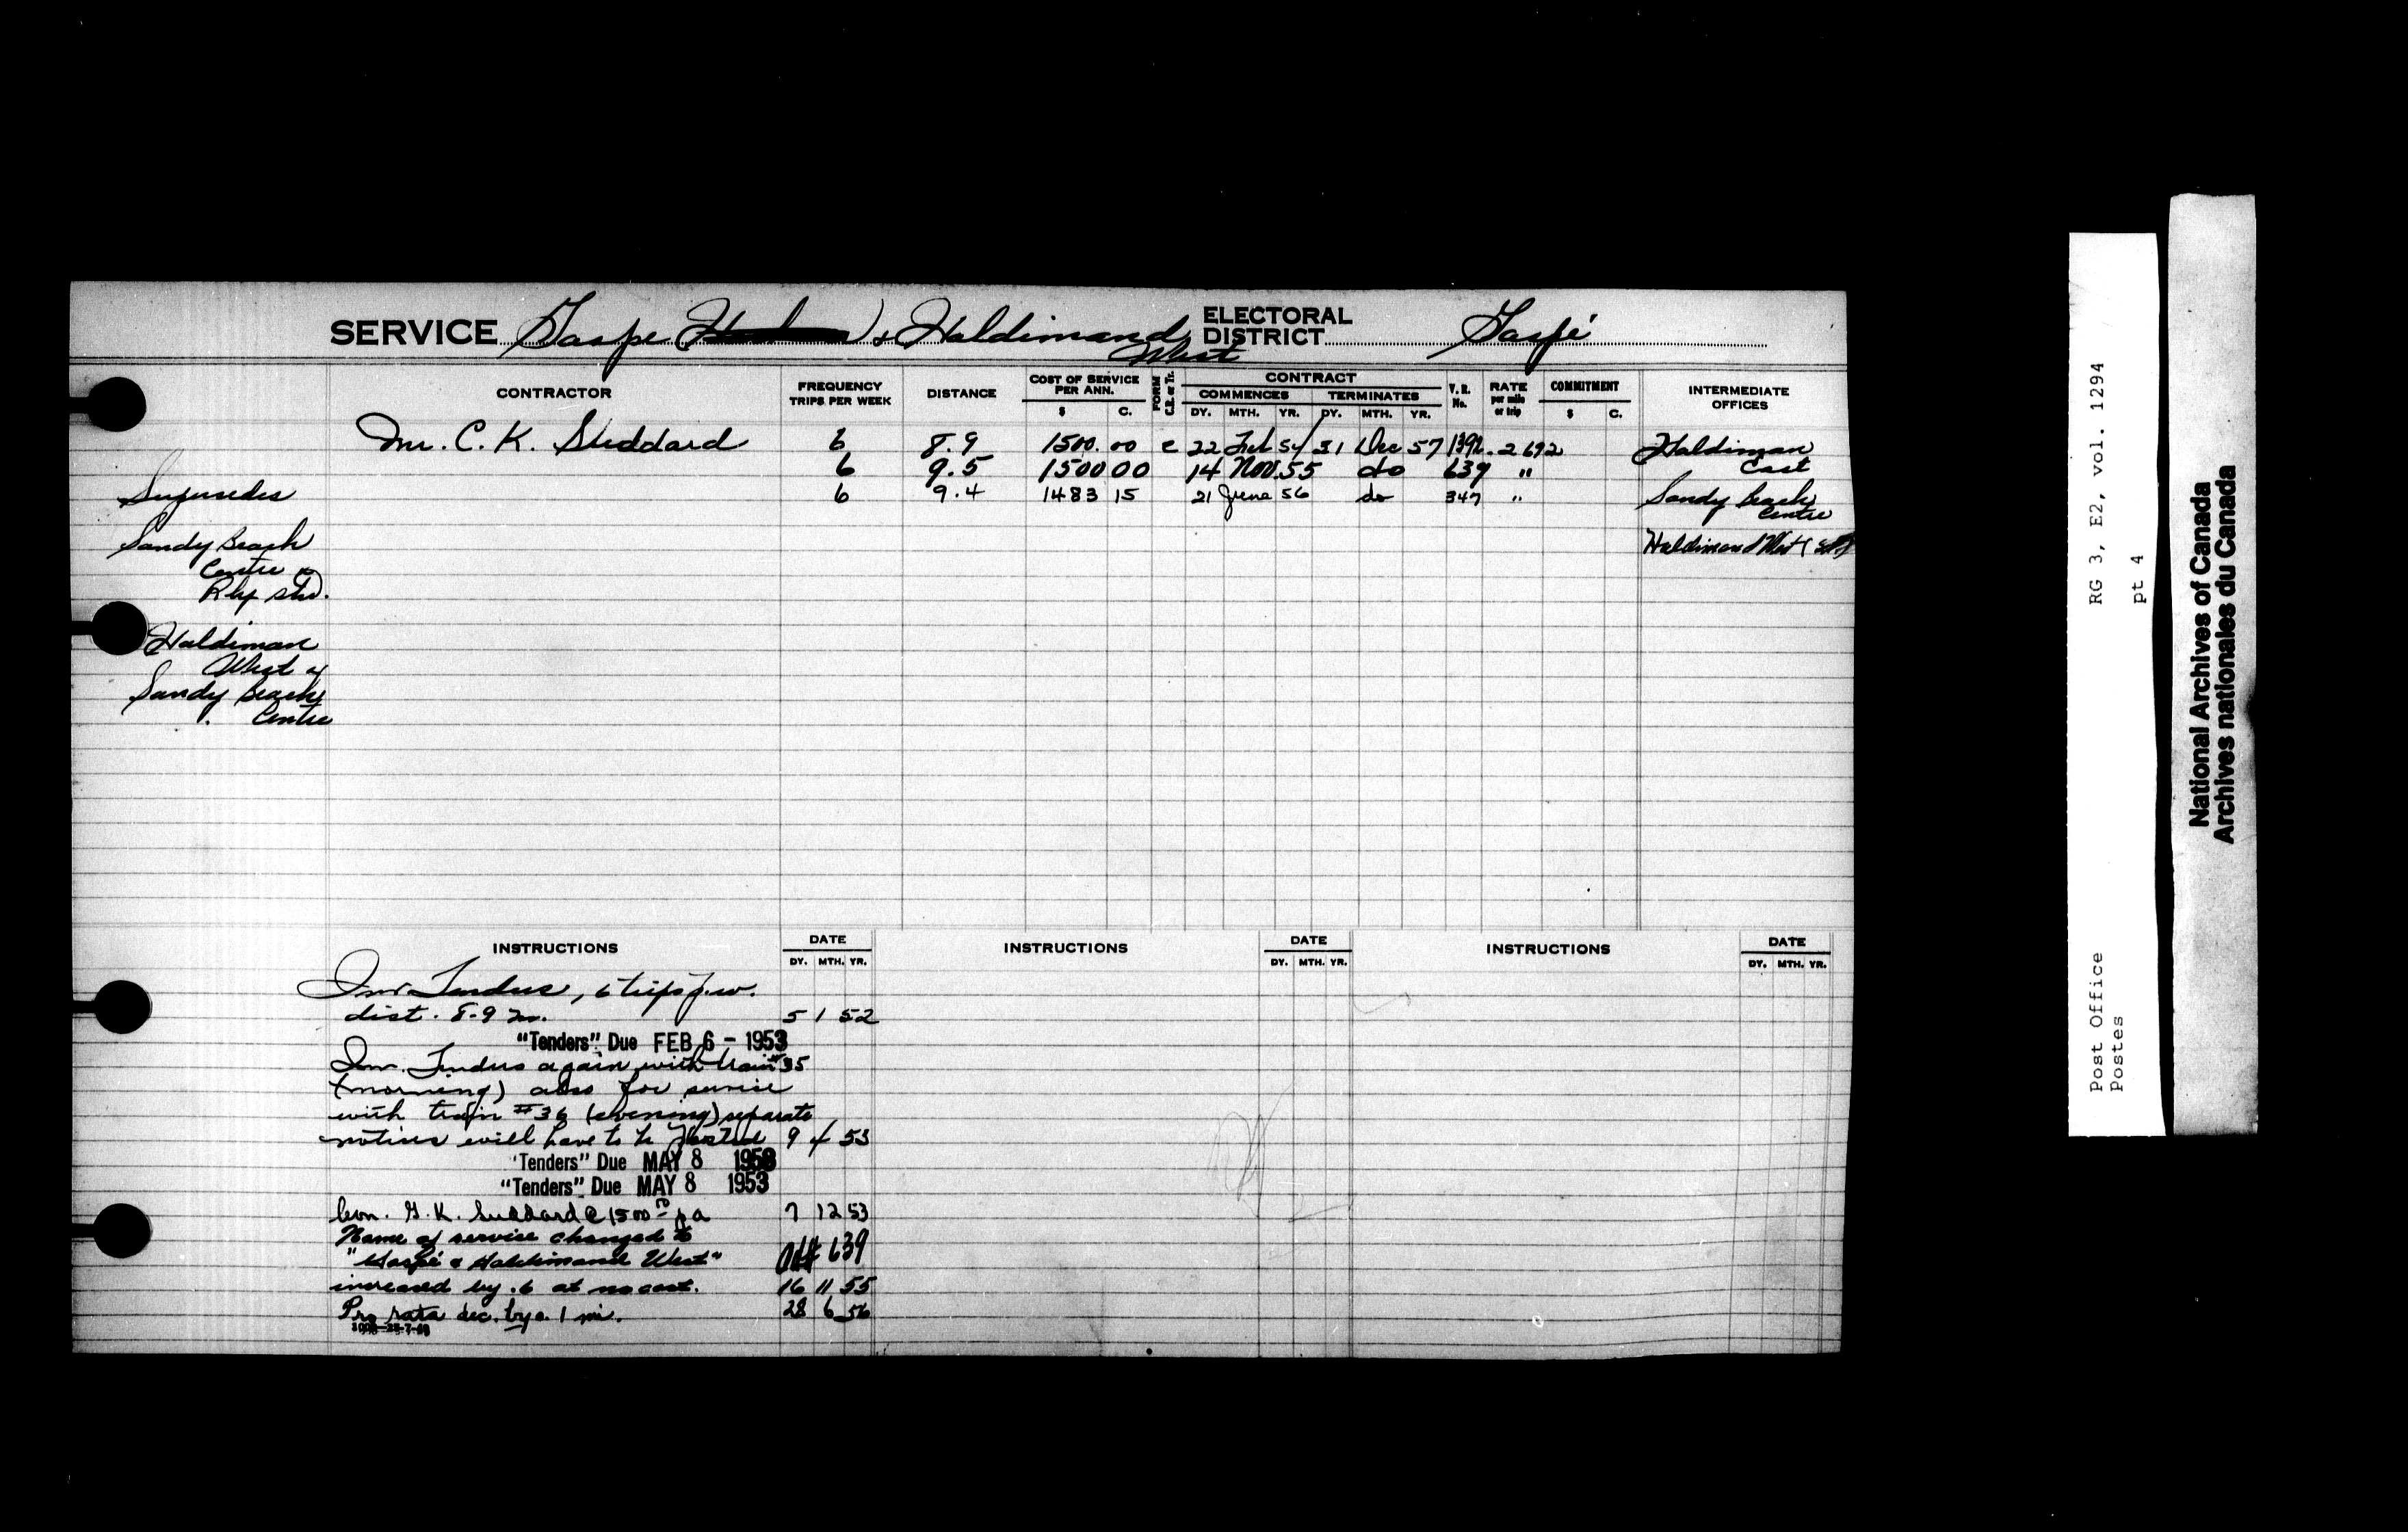 SERVICE Gaspe & Haldimand West ELECTORAL DISTRICT Gaspé
CONTRACTOR FREQUENCY TRIPS PER WEEK DISTANCE COST OF SERVICE PER ANN. $ C. FORM C.R. or Tr. CONTRACT COMMENCES DY. MTH. YR. TERMINATES DY. MTH. YR. V.R. No. RATE per mile or trip COMMITMENT $ C. INTERMEDIATE OFFICES
Mr. C. K. Studdard 6 8.9 1500.00 c 22 Feb 54 31 Dec 57 1392 .2692 Haldiman
6 9.5 1500 00 14 Nov. 55 do 639 " East
Supersedes 6 9.4 1483 15 21 June 56 do 347 " Sandy Beach
Centre
Sandy Beach Haldimand West
Centre &
Rly stn.
Haldiman
West &
Sandy Beach
Centre
INSTRUCTIONS DATE DY. MTH. YR. INSTRUCTIONS DATE DY. MTH. YR. INSTRUCTIONS DATE DY. MTH. YR.
Inv. Tenders, 6 trips p.w.
dist. 8.9 m. 5 1 52
"Tenders" Due FEB 6 - 1953
Inv. Tenders again with train #35
(morning) also for service
with train #36 (evening) separate
notices will have to be posted 9 4 53
"Tenders" Due MAY 8 1953
"Tenders" Due MAY 8 1953
Con. G. K. Suddard @ 1500 pa 7 12 53
Name of service changed to
"Gaspé & Haldimand West" 639
increased by .6 at no cost. 16 11 55
Pro rata dec. by 0.1 mi. 28 6 56
RG 3, E2, vol. 1294
pt 4
Post Office
Postes
National Archives of Canada
Archives nationales du Canada